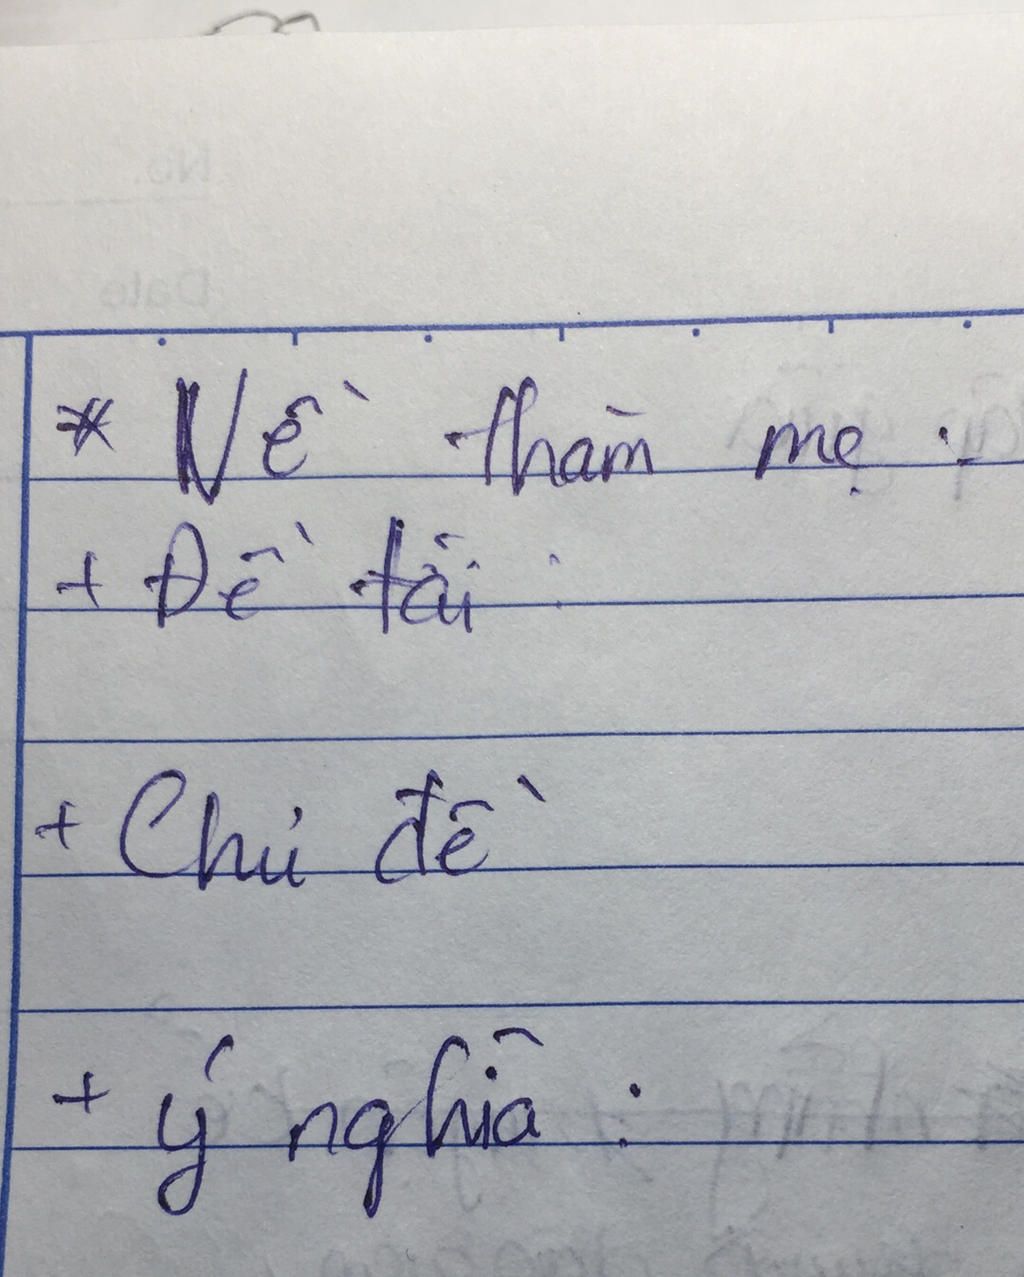 * Về thăm mẹ :
+ Đề tài :
+ Chủ đề
+ ý nghĩa :